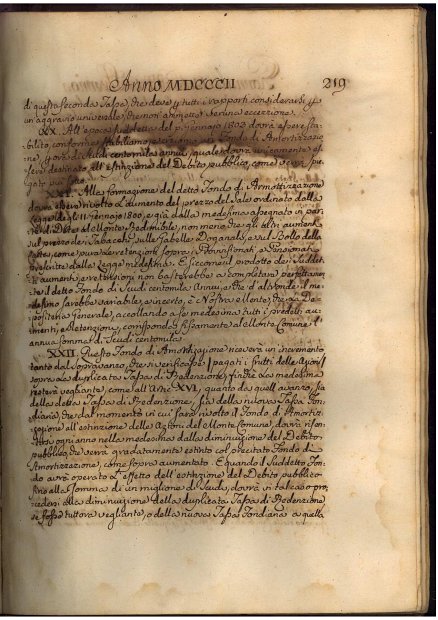 Anno MDCCCII
219
di questa seconda Tassa, che deve p tutti i rapporti considerarsi p
un'aggravio universale, che non ammette veruna eccezione.
XX. All'epoca suddetta del p. Gennajo 1803 dovrà essere sta-
bilito, conforme stabiliamo un Fondo di Amortizzazio
ne, p ora di Scudi centomila annui, quale dovrà unicamente es-
sere destinato all'estinzione del Debito pubblico, come verrà spie
gato
XXI. Alla formazione del detto Fondo di Amortizzazione
dovrà essere rivolto l'aumento del prezzo del Sale ordinato dalla
Legge degli 11 Gennajo 1800, e già dalla medesima assegnato in par
te di Dote al Monte Redimibile, non meno che gli altri aumenti
sul prezzo dei Tabacchi, sulle Gabelle Doganali, e sul Bollo delle
Carte, come pure la retenzione sopra i
prescritte dalla Legge medesima. E siccome il prodotto dei suddet-
ti aumenti, e retenzioni non basterebbe a completare perfettamen
te il detto Fondo di Scudi centomila annui, e che d'altronde il me-
desimo sarebbe variabile, e incerto, è Nostra Mente, che la De-
positeria Generale, accollando a se medesima tutti i predetti au-
menti, e Retenzioni, corrisponda fissamente al Monte Comune l'
annua somma di Scudi centomila.
XXII. Questo Fondo di Amortizzazione riceverà un incremento
tanto dal sopravanzo, che si verificasse pagati i frutti delle Azioni
sopra la duplicata Tassa di Redenzione, finchè la medesima
resterà vegliante, come all'Arte XVI, quanto da quell'avanzo, sia
della detta Tassa di Redenzione, sia della nuova Tassa Fon-
diaria, che dal momento in cui sarà rivolto il Fondo di Amortiz-
zazione all'estinzione delle Azioni del Monte Comune, dovrà rifon-
dersi ogni anno nella medesima dalla diminuzione del Debito
pubblico, che verrà gradatamente estinto col precitato Fondo di
Amortizzazione, come sopra aumentato. E quando il suddetto Fon-
do avrà operato l'effetto dell'estinzione del Debito pubblico
fino alla somma di un milione di Scudi, dovrà in tal caso pro-
cedersi alla diminuzione della duplicata Tassa di Redenzione
se fosse tuttora vegliante, o della nuova Tassa Fondiaria a quella